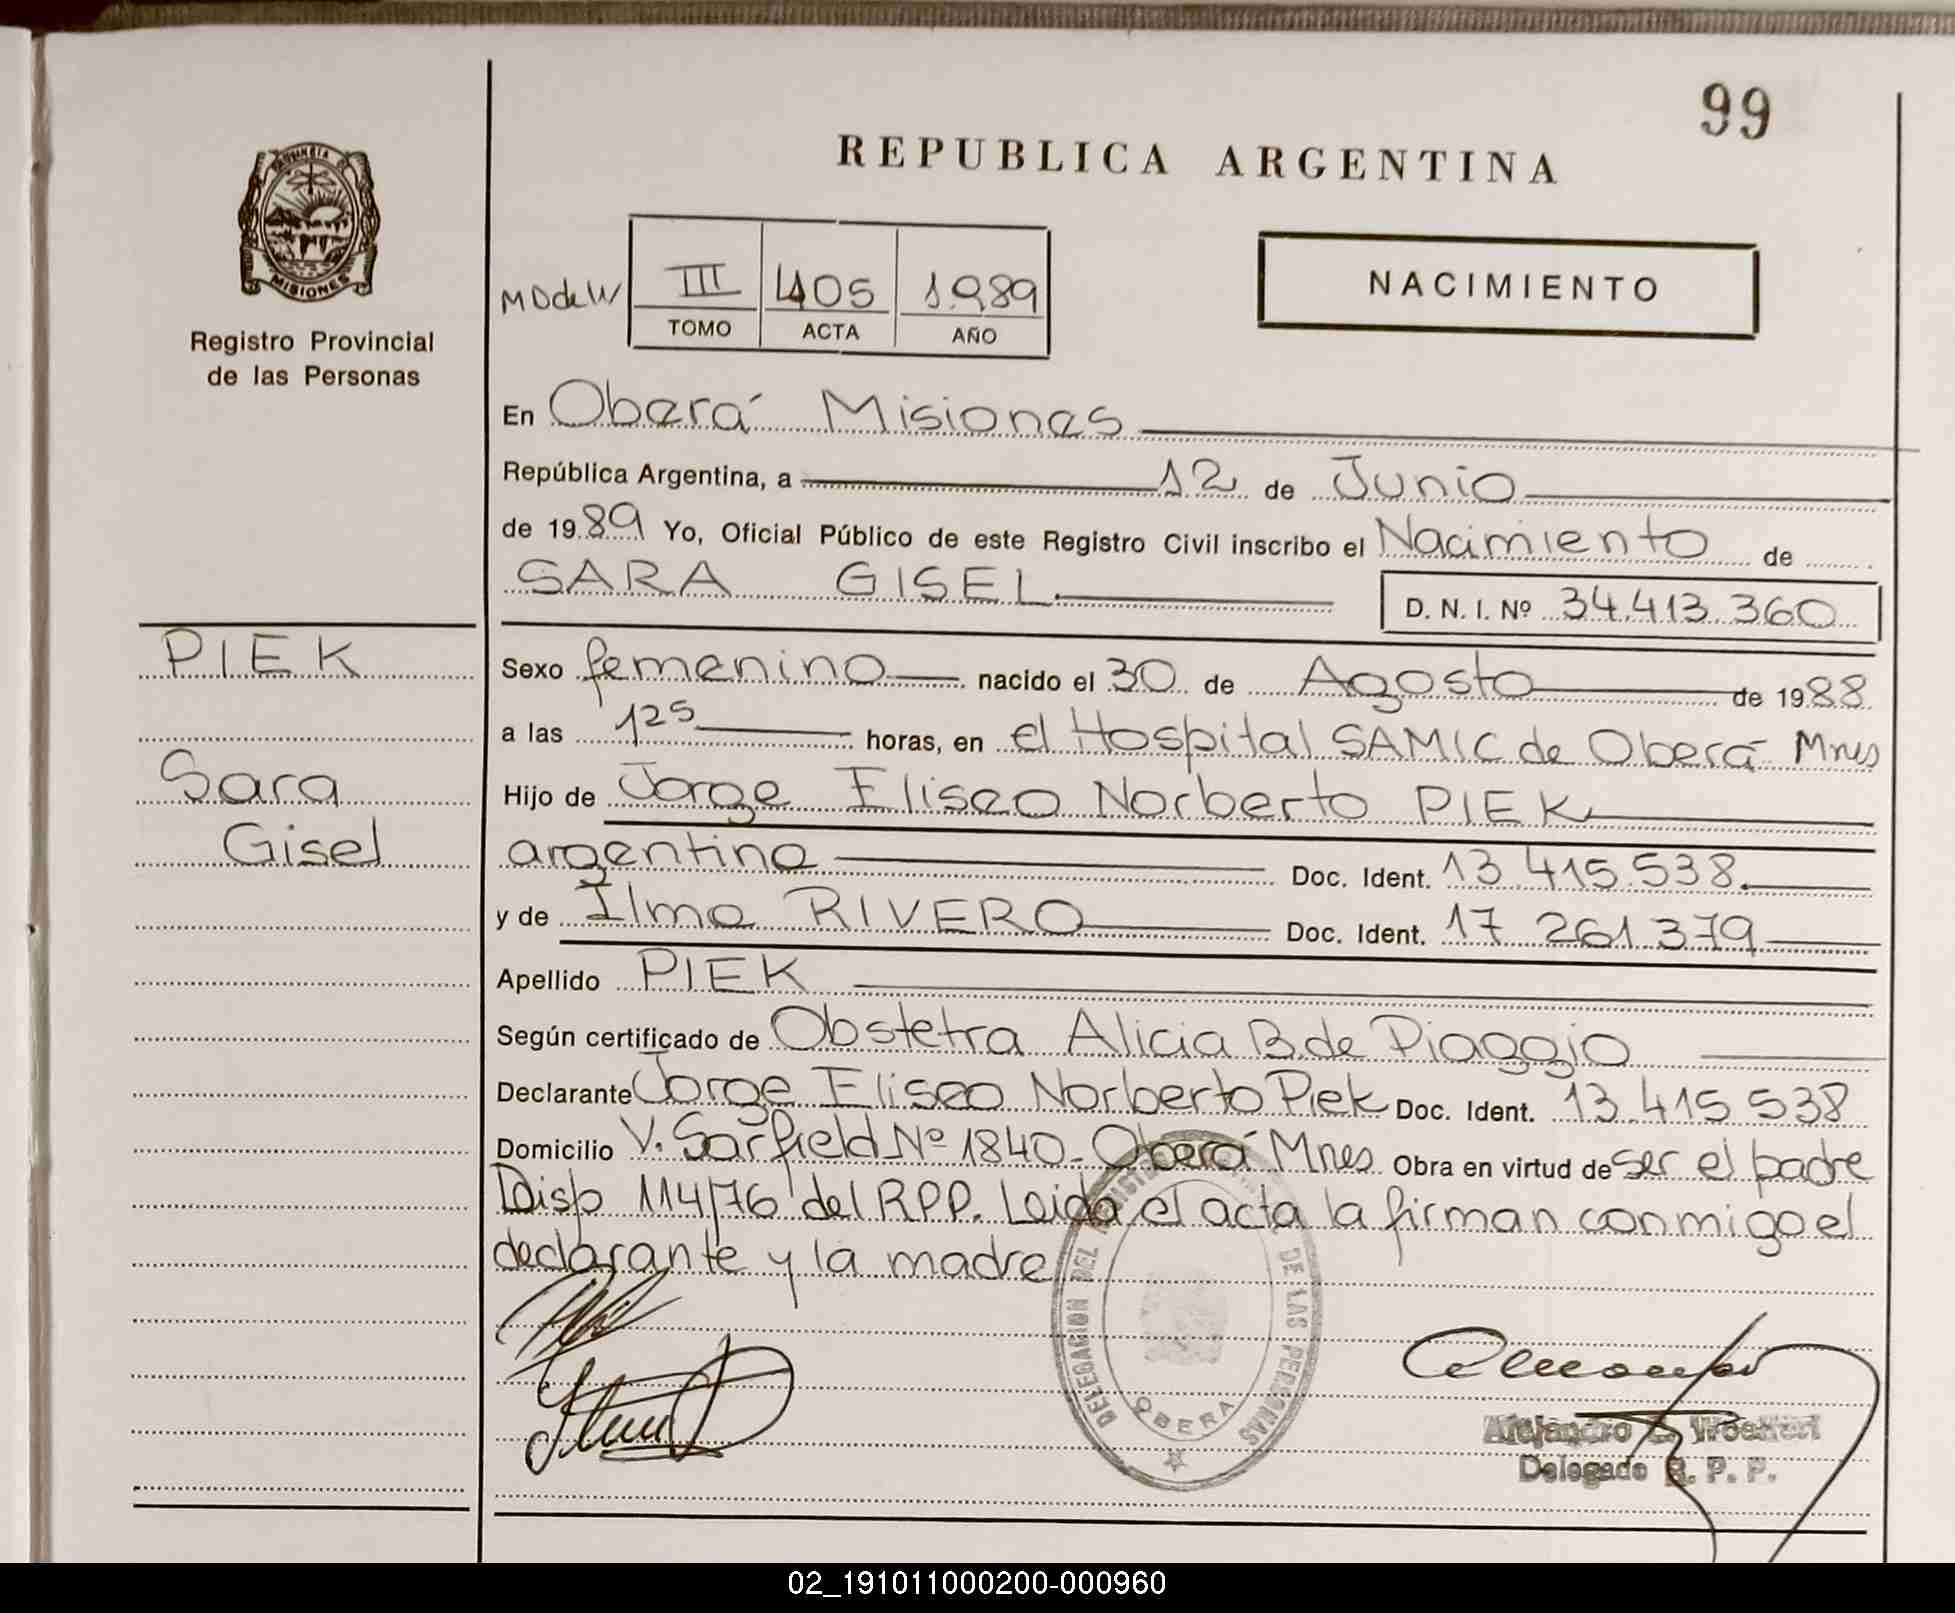 99
REPUBLICA ARGENTINA
PROVINCIA D
MISIONES
Registro Provincial
de las Personas
III 405 1.989
TOMO ACTA AÑO
NACIMIENTO
En Oberá Misiones
República Argentina, a 12 de Junio
de 1989 Yo, Oficial Público de este Registro Civil inscribo el Nacimiento de
SARA GISEL
D. N. I. Nº 34.413.360
PIEK
Sara
Gisel
Sexo femenino nacido el 30 de Agosto de 1988
a las 1 25 horas, en el Hospital SAMIC de Oberá Mnes
Hijo de Jorge Eliseo Norberto PIEK
argentino Doc. Ident. 13.415.538.
y de Ilma RIVERO Doc. Ident. 17 261.379
Apellido PIEK
Según certificado de Obstetra Alicia B. de Piaggio
Declarante Jorge Eliseo Norberto Piek Doc. Ident. 13.415 538
Domicilio V. Sarfield Nº 1840 - Oberá Mnes Obra en virtud de ser el padre
Disp 114/76 del RPP. Leida el acta la firman conmigo el
declarante y la madre
DELEGACION DEL REGISTRO DE LAS PERSONAS
OBERA
Alejandro
Delegado R. P. P.
02_191011000200-000960